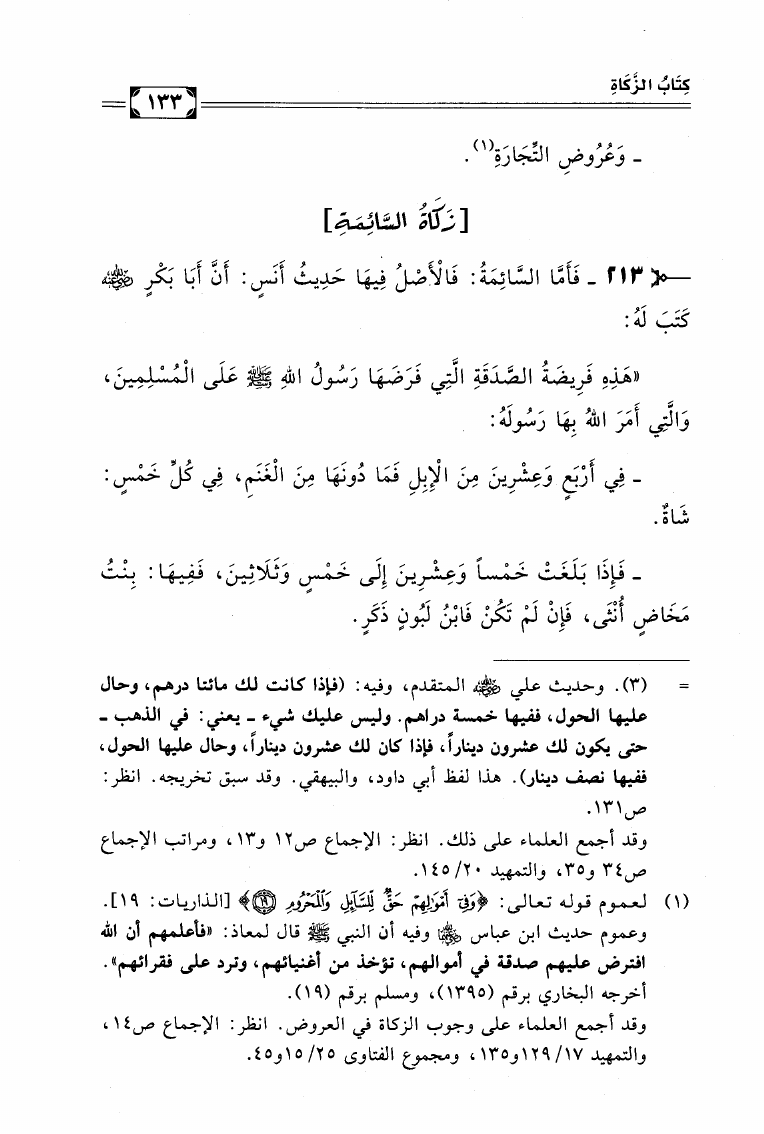 كِتَابُ الزَّكَاةِ
١٣٣
ـ وَعُرُوضِ التِّجَارَةِ(١).
[زَكَاةُ السَّائِمَةِ]
٢١٣ ـ فَأَمَّا السَّائِمَةُ: فَالْأَصْلُ فِيهَا حَدِيثُ أَنَسٍ: أَنَّ أَبَا بَكْرٍ رضي الله عنه
كَتَبَ لَهُ:
«هَذِهِ فَرِيضَةُ الصَّدَقَةِ الَّتِي فَرَضَهَا رَسُولُ اللهِ ﷺ عَلَى الْمُسْلِمِينَ،
وَالَّتِي أَمَرَ اللهُ بِهَا رَسُولَهُ:
ـ فِي أَرْبَعٍ وَعِشْرِينَ مِنَ الْإِبِلِ فَمَا دُونَهَا مِنَ الْغَنَمِ، فِي كُلِّ خَمْسٍ:
شَاةٌ.
ـ فَإِذَا بَلَغَتْ خَمْساً وَعِشْرِينَ إِلَى خَمْسٍ وَثَلَاثِينَ، فَفِيهَا: بِنْتُ
مَخَاضٍ أُنْثَى، فَإِنْ لَمْ تَكُنْ فَابْنُ لَبُونٍ ذَكَرٍ.
= (٣). وحديث علي رضي الله عنه المتقدم، وفيه: (فإذا كانت لك مائتا درهم، وحال
عليها الحول، ففيها خمسة دراهم. وليس عليك شيء ـ يعني: في الذهب ـ
حتى يكون لك عشرون ديناراً، فإذا كان لك عشرون ديناراً، وحال عليها الحول،
ففيها نصف دينار). هذا لفظ أبي داود، والبيهقي. وقد سبق تخريجه. انظر:
ص١٣١.
وقد أجمع العلماء على ذلك. انظر: الإجماع ص١٢ و١٣، ومراتب الإجماع
ص٣٤ و٣٥، والتمهيد ٢٠/ ١٤٥.
(١) لعموم قوله تعالى: ﴿وَفِي أَمْوَالِهِمْ حَقٌّ لِّلسَّآئِلِ وَالْمَحْرُومِ ١٩﴾ [الذاريات: ١٩].
وعموم حديث ابن عباس رضي الله عنهما وفيه أن النبي ﷺ قال لمعاذ: «فأعلمهم أن الله
افترض عليهم صدقة في أموالهم، تؤخذ من أغنيائهم، وترد على فقرائهم».
أخرجه البخاري برقم (١٣٩٥)، ومسلم برقم (١٩).
وقد أجمع العلماء على وجوب الزكاة في العروض. انظر: الإجماع ص١٤،
والتمهيد ١٧/ ١٢٩و١٣٥، ومجموع الفتاوى ٢٥/ ١٥و٤٥.